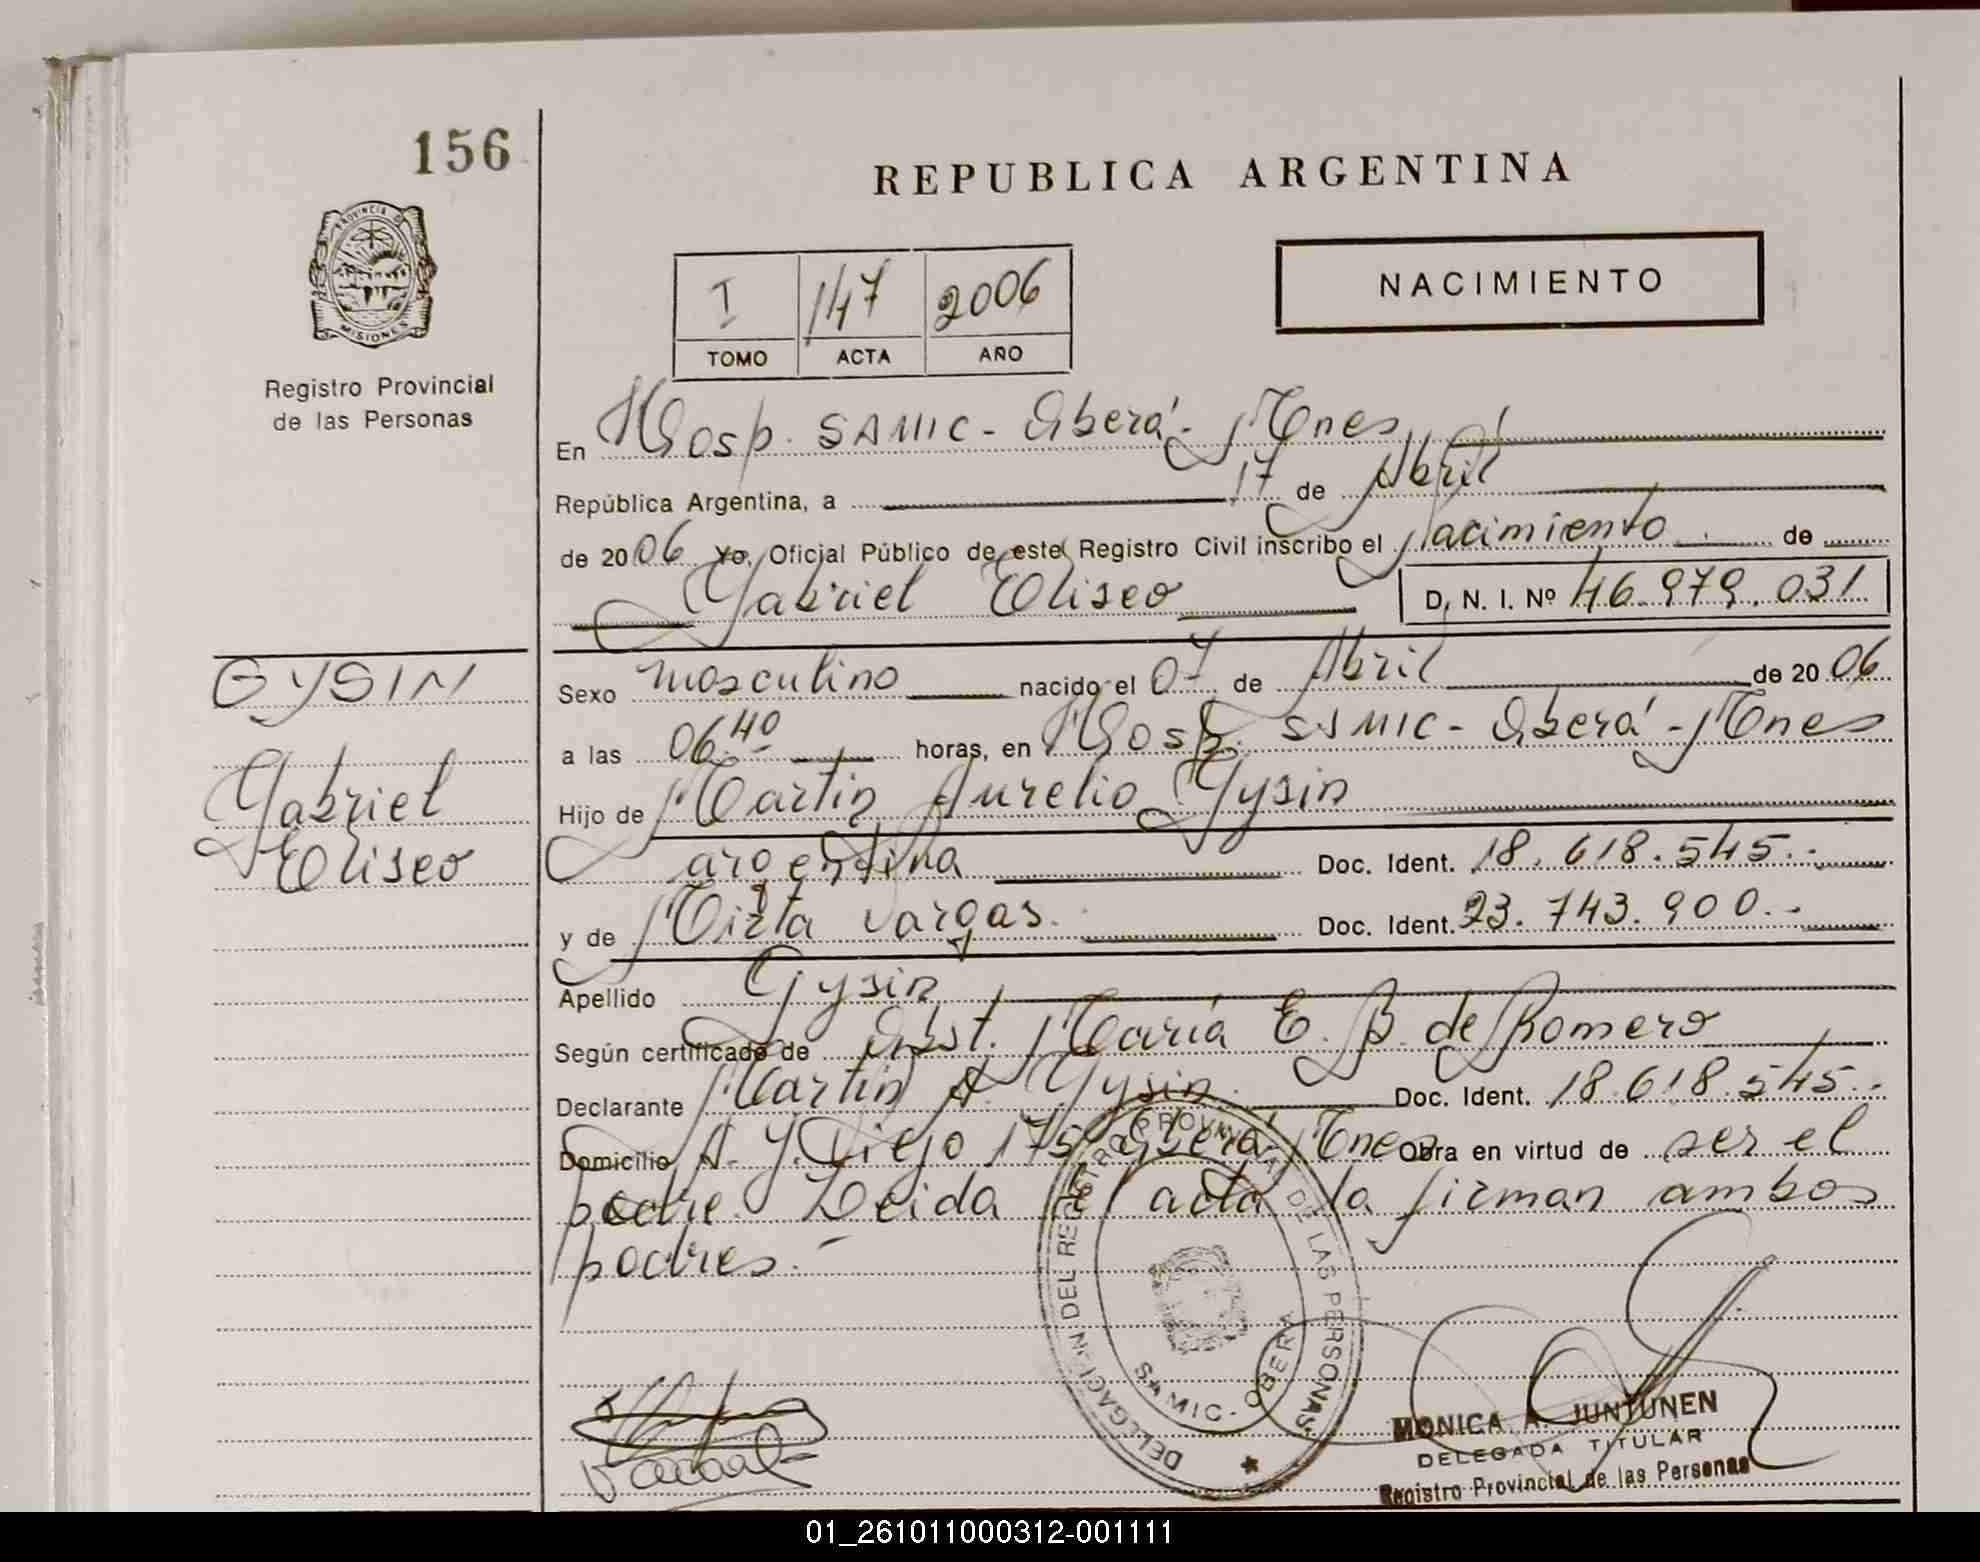 156
REPUBLICA ARGENTINA
PROVINCIA D
MISIONES
Registro Provincial
de las Personas
I 147 2006
TOMO ACTA AÑO
NACIMIENTO
En Hosp. SAMIC - Oberá - Mnes
República Argentina, a 17 de Abril
de 2006 Yo, Oficial Público de este Registro Civil inscribo el Nacimiento de
Gabriel Eliseo D. N. I. Nº 46.979.031
GYSIN
Gabriel
Eliseo
Sexo masculino nacido el 07 de Abril de 2006
a las 06.40 horas, en Hosp. SAMIC - Oberá - Mnes
Hijo de Martin Aurelio Gysin
argentina Doc. Ident. 18.618.545.-
y de Mirta Vargas. Doc. Ident. 23.743.900.-
Apellido Gysin
Según certificado de Obst. María E. B. de Romero
Declarante Martin A. Gysin. Doc. Ident. 18.618.545.-
Domicilio A. Y. Viejo 175 Oberá Mnes Obra en virtud de ser el
padre. Leida el acta la firman ambos
padres.-
DELEGACION DEL REGISTRO PROVINCIAL DE LAS PERSONAS
SAMIC - OBERA
MONICA A. JUNTUNEN
DELEGADA TITULAR
Registro Provincial de las Personas
01_261011000312-001111